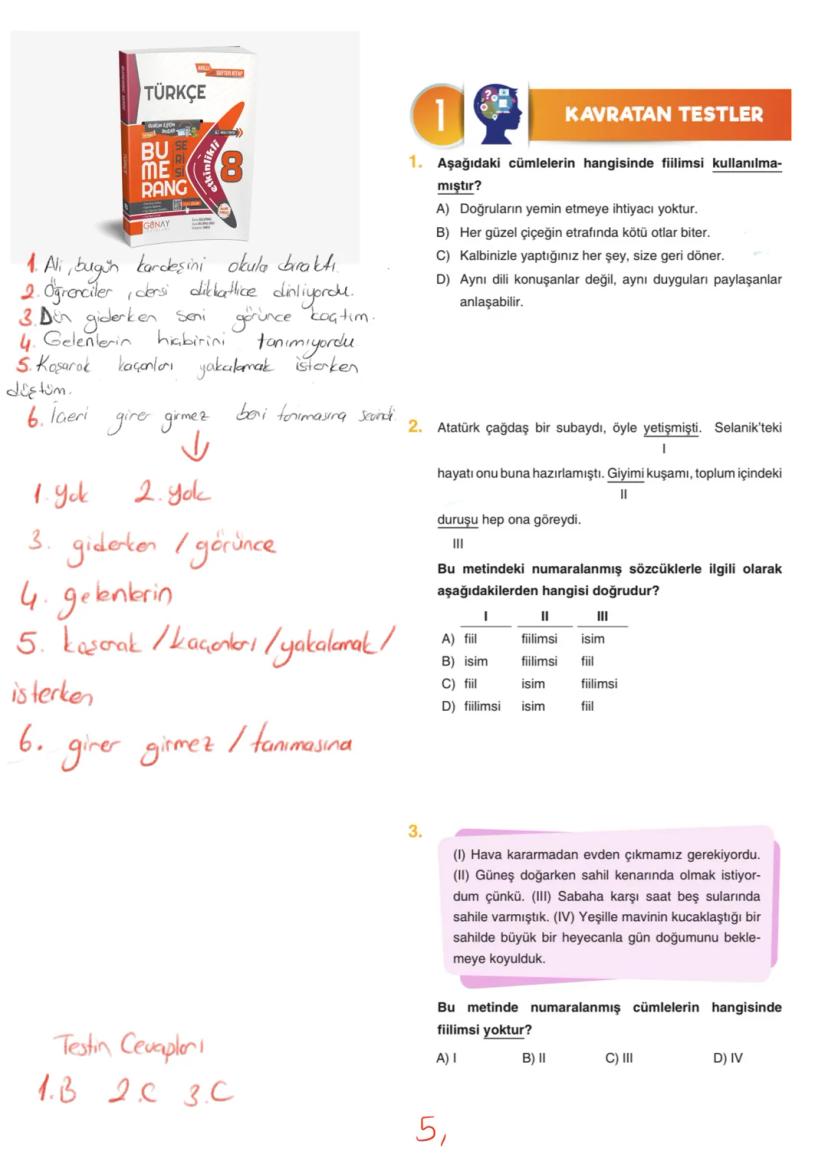 TÜRKÇE
BU
ME
RANG
SE
Rİ
Sİ
etkinlikli
8
GÜNAY
1. Ali, bugün kardeşini okula bıraktı.
2. Öğrenciler, dersi dikkatlice dinliyordu.
3. Dün giderken seni görünce kaçtım.
4. Gelenlerin hiçbirini tanımıyordu
5. Koşarak kaçanları yakalamak isterken
düştüm.
6. İçeri girer girmez beni tanımasına sevindi.
1. yok 2. yok
3. giderken / görünce
4. gelenlerin
5. koşarak / kaçanları / yakalamak /
isterken
6. girer girmez / tanımasına
Testin Cevapları
1.B 2.C 3.C
1 KAVRATAN TESTLER
1. Aşağıdaki cümlelerin hangisinde fiilimsi kullanılma-
mıştır?
A) Doğruların yemin etmeye ihtiyacı yoktur.
B) Her güzel çiçeğin etrafında kötü otlar biter.
C) Kalbinizle yaptığınız her şey, size geri döner.
D) Aynı dili konuşanlar değil, aynı duyguları paylaşanlar
anlaşabilir.
2. Atatürk çağdaş bir subaydı, öyle yetişmişti. Selanik'teki
I
hayatı onu buna hazırlamıştı. Giyimi kuşamı, toplum içindeki
II
duruşu hep ona göreydi.
III
Bu metindeki numaralanmış sözcüklerle ilgili olarak
aşağıdakilerden hangisi doğrudur?
I II III
A) fiil fiilimsi isim
B) isim fiilimsi fiil
C) fiil isim fiilimsi
D) fiilimsi isim fiil
3.
(I) Hava kararmadan evden çıkmamız gerekiyordu.
(II) Güneş doğarken sahil kenarında olmak istiyor-
dum çünkü. (III) Sabaha karşı saat beş sularında
sahile varmıştık. (IV) Yeşille mavinin kucaklaştığı bir
sahilde büyük bir heyecanla gün doğumunu bekle-
meye koyulduk.
Bu metinde numaralanmış cümlelerin hangisinde
fiilimsi yoktur?
A) I B) II C) III D) IV
5,